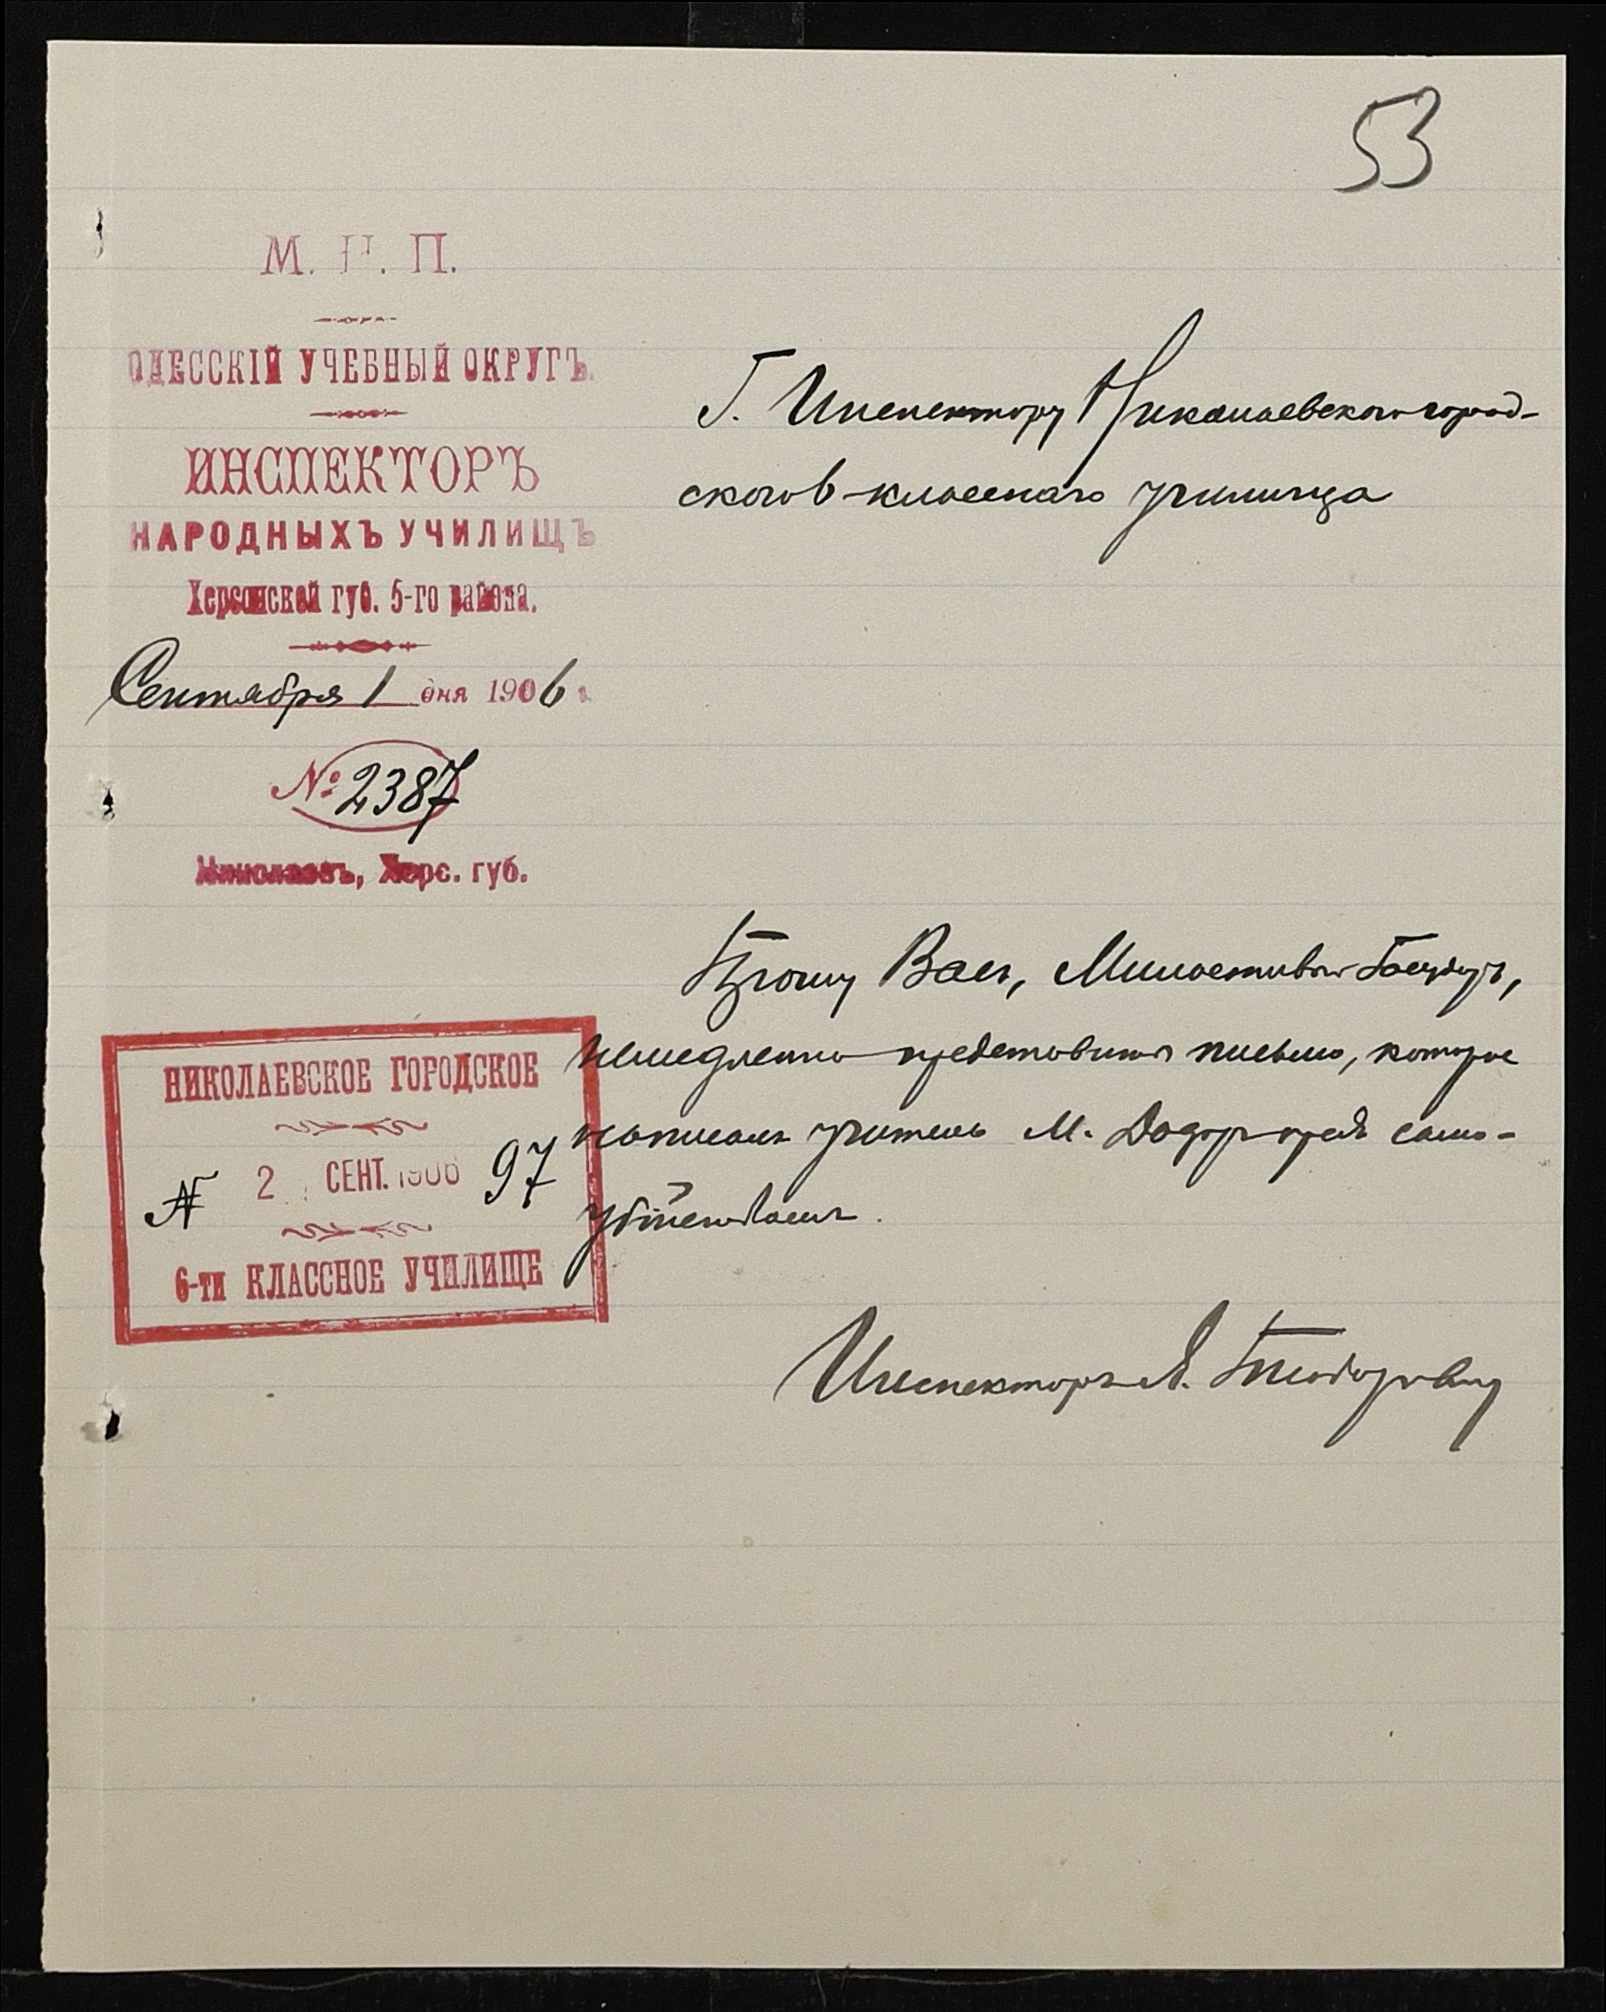 53
М. Н. П.
ОДЕССКІЙ УЧЕБНЫЙ ОКРУГЪ.
ИНСПЕКТОРЪ
НАРОДНЫХЪ УЧИЛИЩЪ
Херсонской губ. 5-го района.
Сентября 1 дня 1906 г.
№ 2387
Николаевъ, Херс. губ.
Г. Инспектору Николаевского город-
ского 6-классного училища
Прошу Васъ, Милостивый Государь,
немедленно представить письмо, которое
написалъ учитель М. предъ само-
убійствомъ.
Инспекторъ А.
НИКОЛАЕВСКОЕ ГОРОДСКОЕ
№ 2 СЕНТ. 1906 97
6-ти КЛАССНОЕ УЧИЛИЩЕ